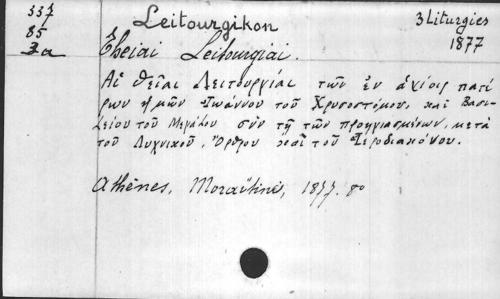 337 Leitourgikon 3 Liturgies
85 1877
3a Theiai Leitourgiai.
Αἱ θεῖαι Λειτουργίαι τῶν ἐν ἁγίοις πατέ
ρων ἡμῶν Ἰωάννου τοῦ Χρυσοστόμου, καὶ Βασι-
λείου τοῦ Μεγάλου σὺν τῇ τῶν προηγιασμένων, μετὰ
τοῦ Λυχνικοῦ, Ὄρθρου καὶ τοῦ Ἱεροδιακόνου.
Athènes, Moraïtinès, 1877. 8º